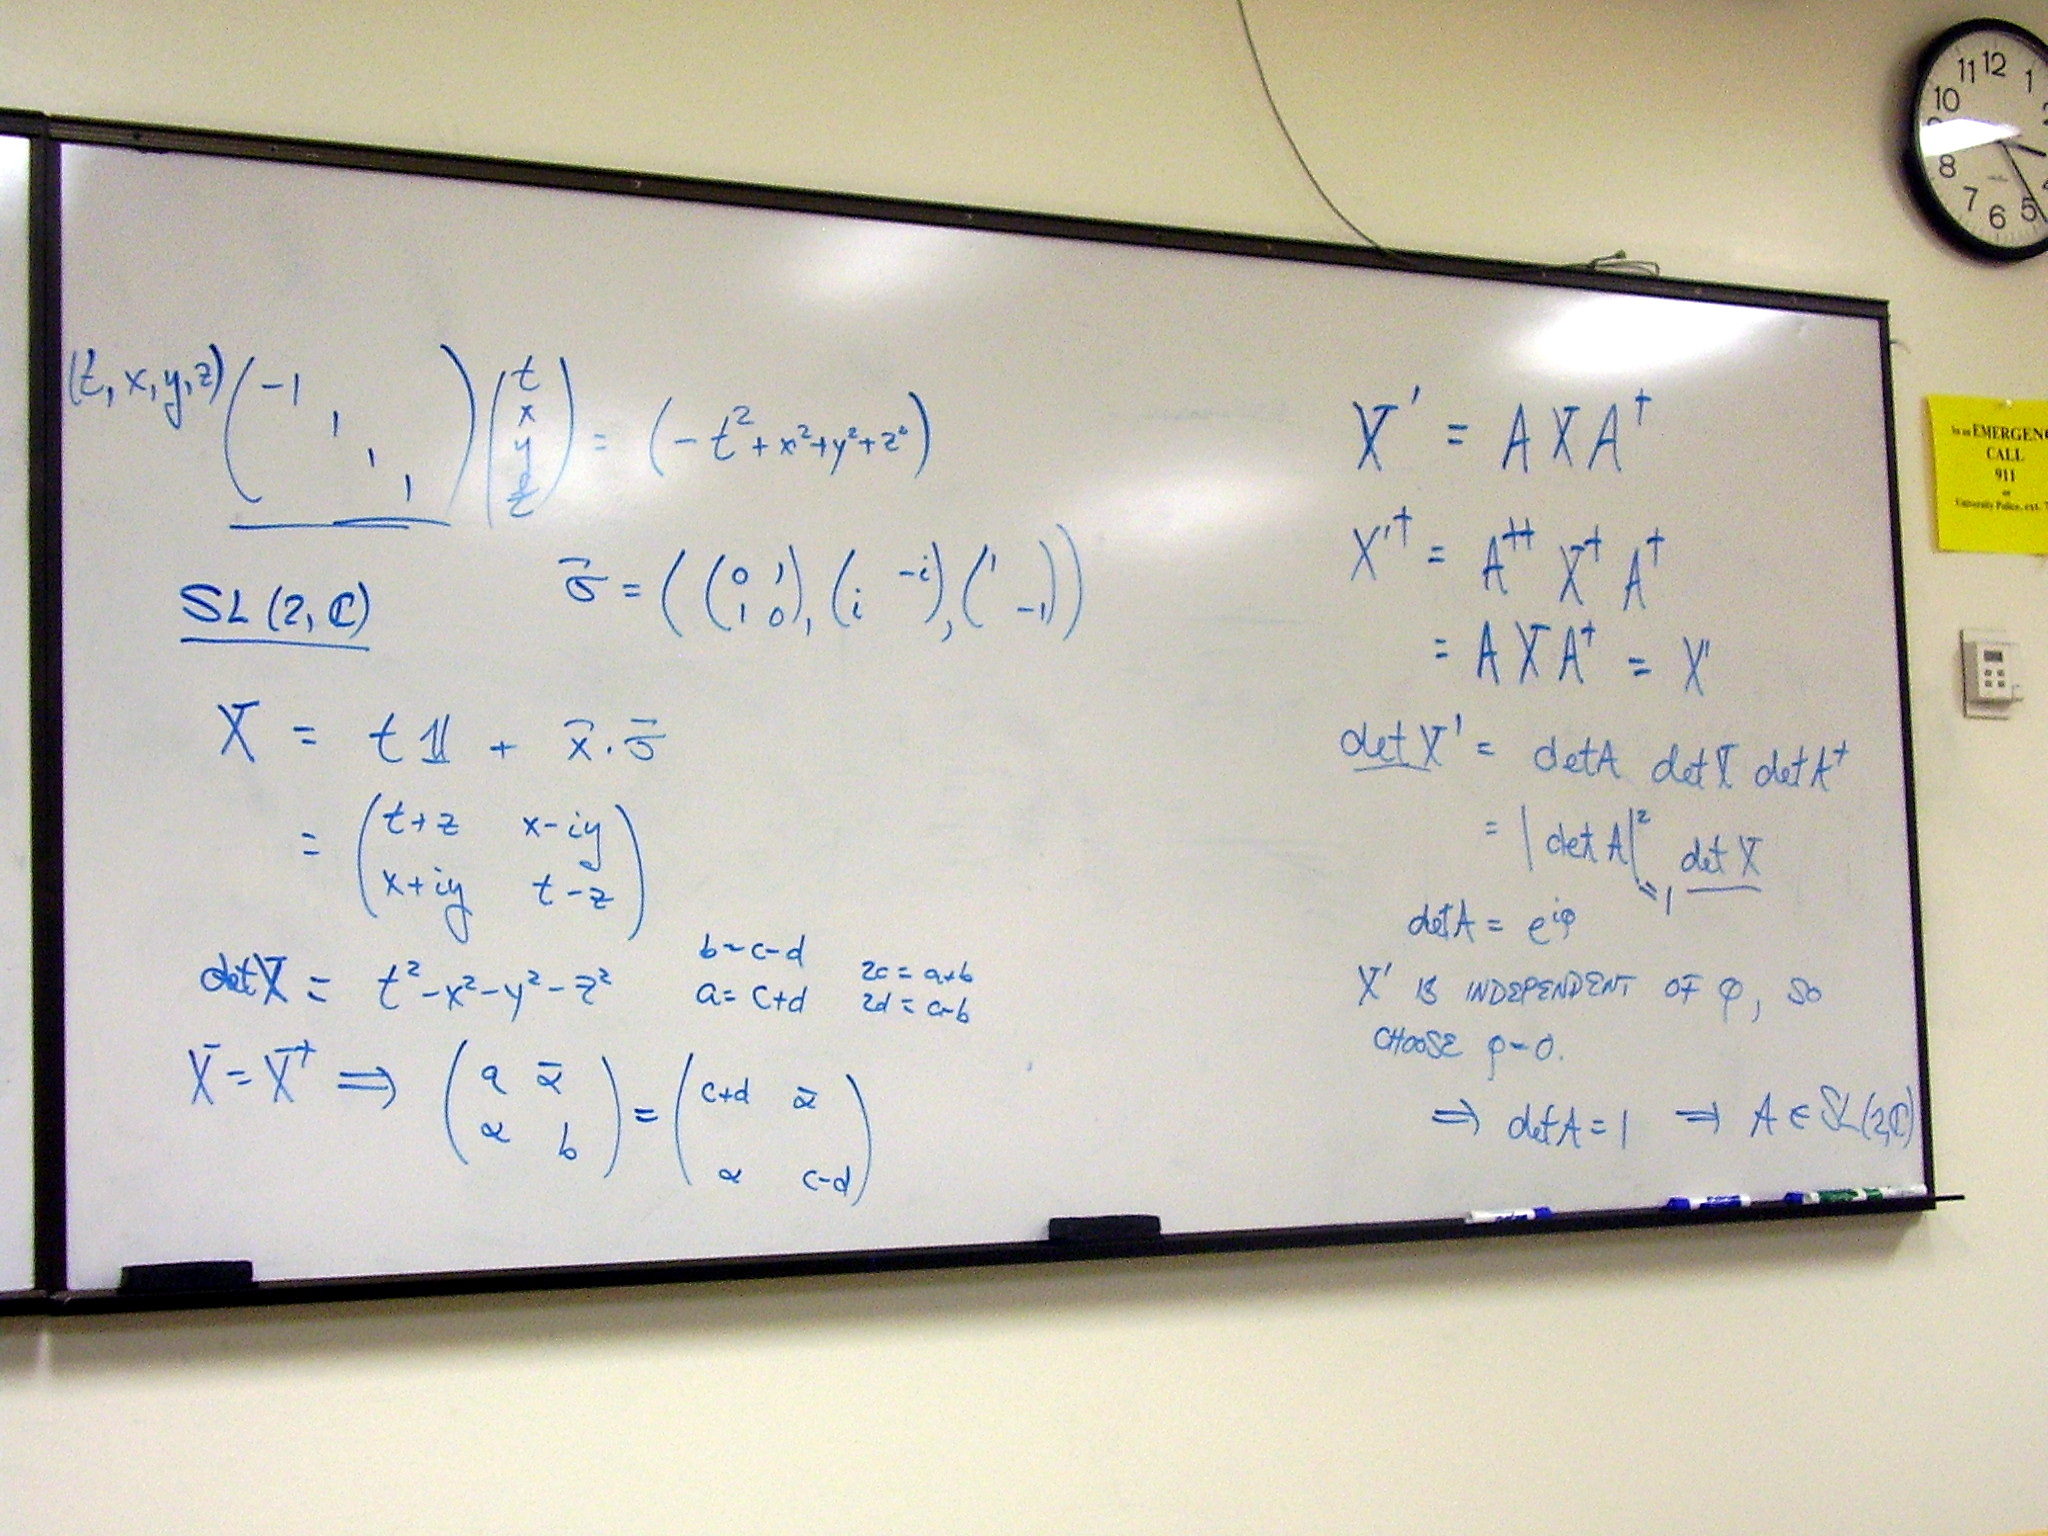 (t, x, y, z) ( -1 1 1 1 ) ( t x y z ) = (-t² + x² + y² + z²)
SL(2, ℂ)
σ⃗ = ( ( 0 1 1 0 ), ( -i i ), ( 1 -1 ) )
X = t 𝟙 + x⃗ · σ⃗
= ( t+z x-iy
x+iy t-z )
det X = t² - x² - y² - z²
b = c-d
a = c+d
2c = a+b
2d = a-b
X = X† ⇒ ( a ᾱ α b ) = ( c+d ᾱ α c-d )
X' = A X A†
X'† = A†† X† A†
= A X A† = X'
det X' = det A det X det A†
= |det A|² det X
= 1
det A = e^{iφ}
X' IS INDEPENDENT OF φ, SO
CHOOSE φ=0.
⇒ det A = 1 ⇒ A ∈ SL(2,ℂ)
11 12 1
10
8
7 6 5
In an EMERGEN
CALL
911
or
University Police, ext. 7